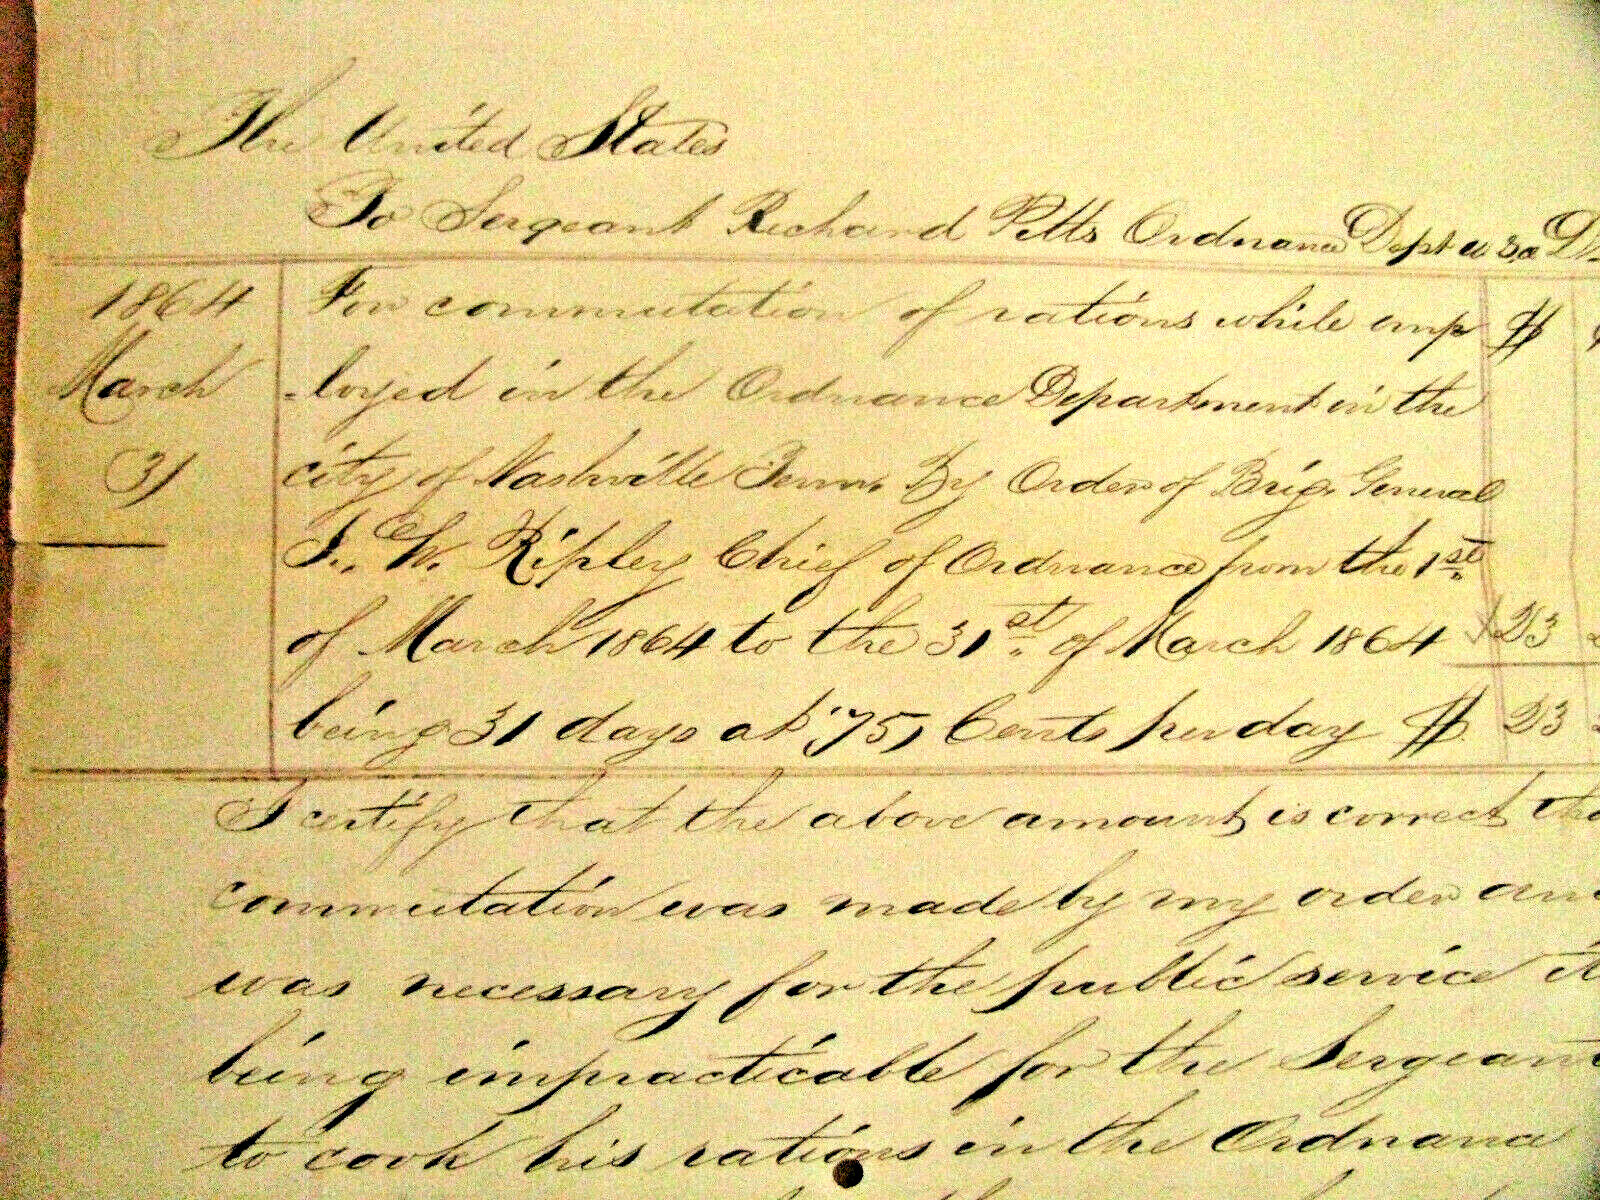 The United States
To Sergeant Richard Pitts Ordnance Dept U S a
1864 For commutation of rations while emp $
March -loyed in the Ordnance Department in the
31 city of Nashville Tenn. By Order of Brig. General
J. W. Ripley Chief of Ordnance from the 1st
of March 1864 to the 31st of March 1864 23
being 31 days at 75, Cents per day $ 23
I certify that the above amount is correct
commutation was made by my order
was necessary for the public service
being impracticable for the Sergeant
to cook his rations in the Ordnance